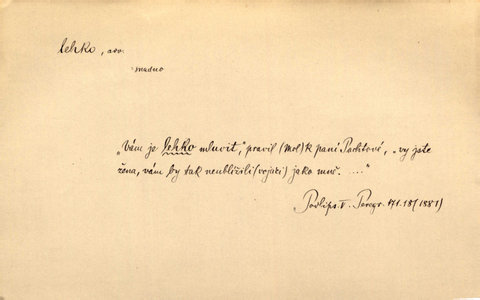 lehko, adv.
snadno
„Vám je lehko mluvit,“ pravil (Mol) k paní Pachtové, „vy jste
žena, vám by tak neublížili (vojáci) jako muž. ....“
Podlips. V. Peregr. 171. 18 (1881)